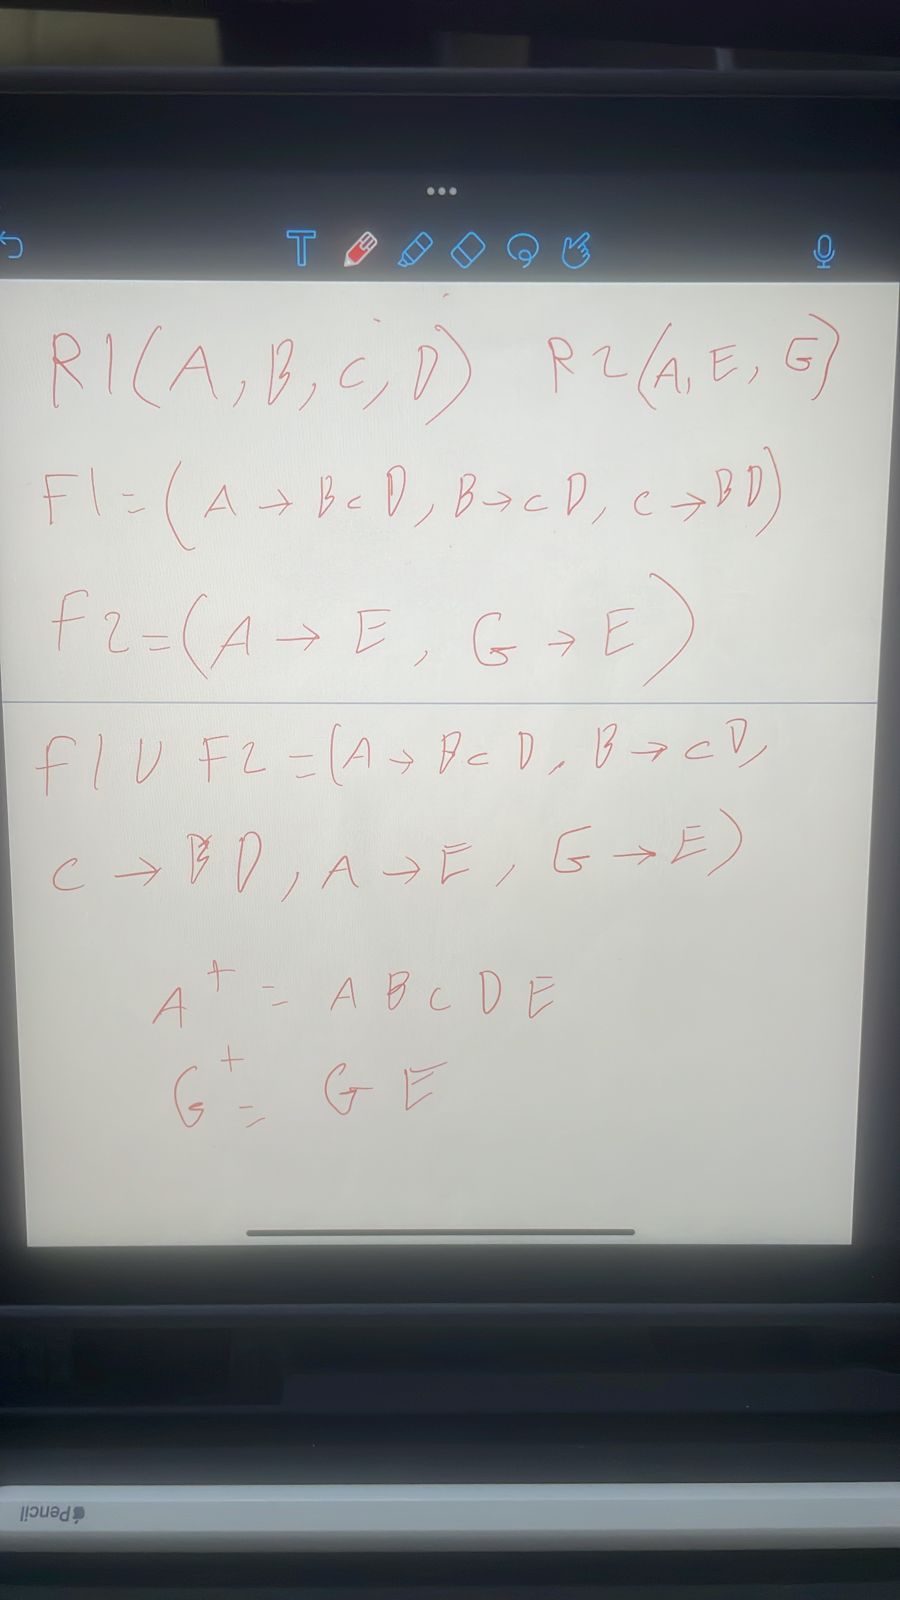 R1(A, B, C, D) R2(A, E, G)
F1=(A → BCD, B→CD, C→BD)
F2=(A → E, G → E)
F1 U F2=(A → BCD, B → CD,
C → BD, A → E, G → E)
A+ = A B C D E
G+ = G E
Pencil